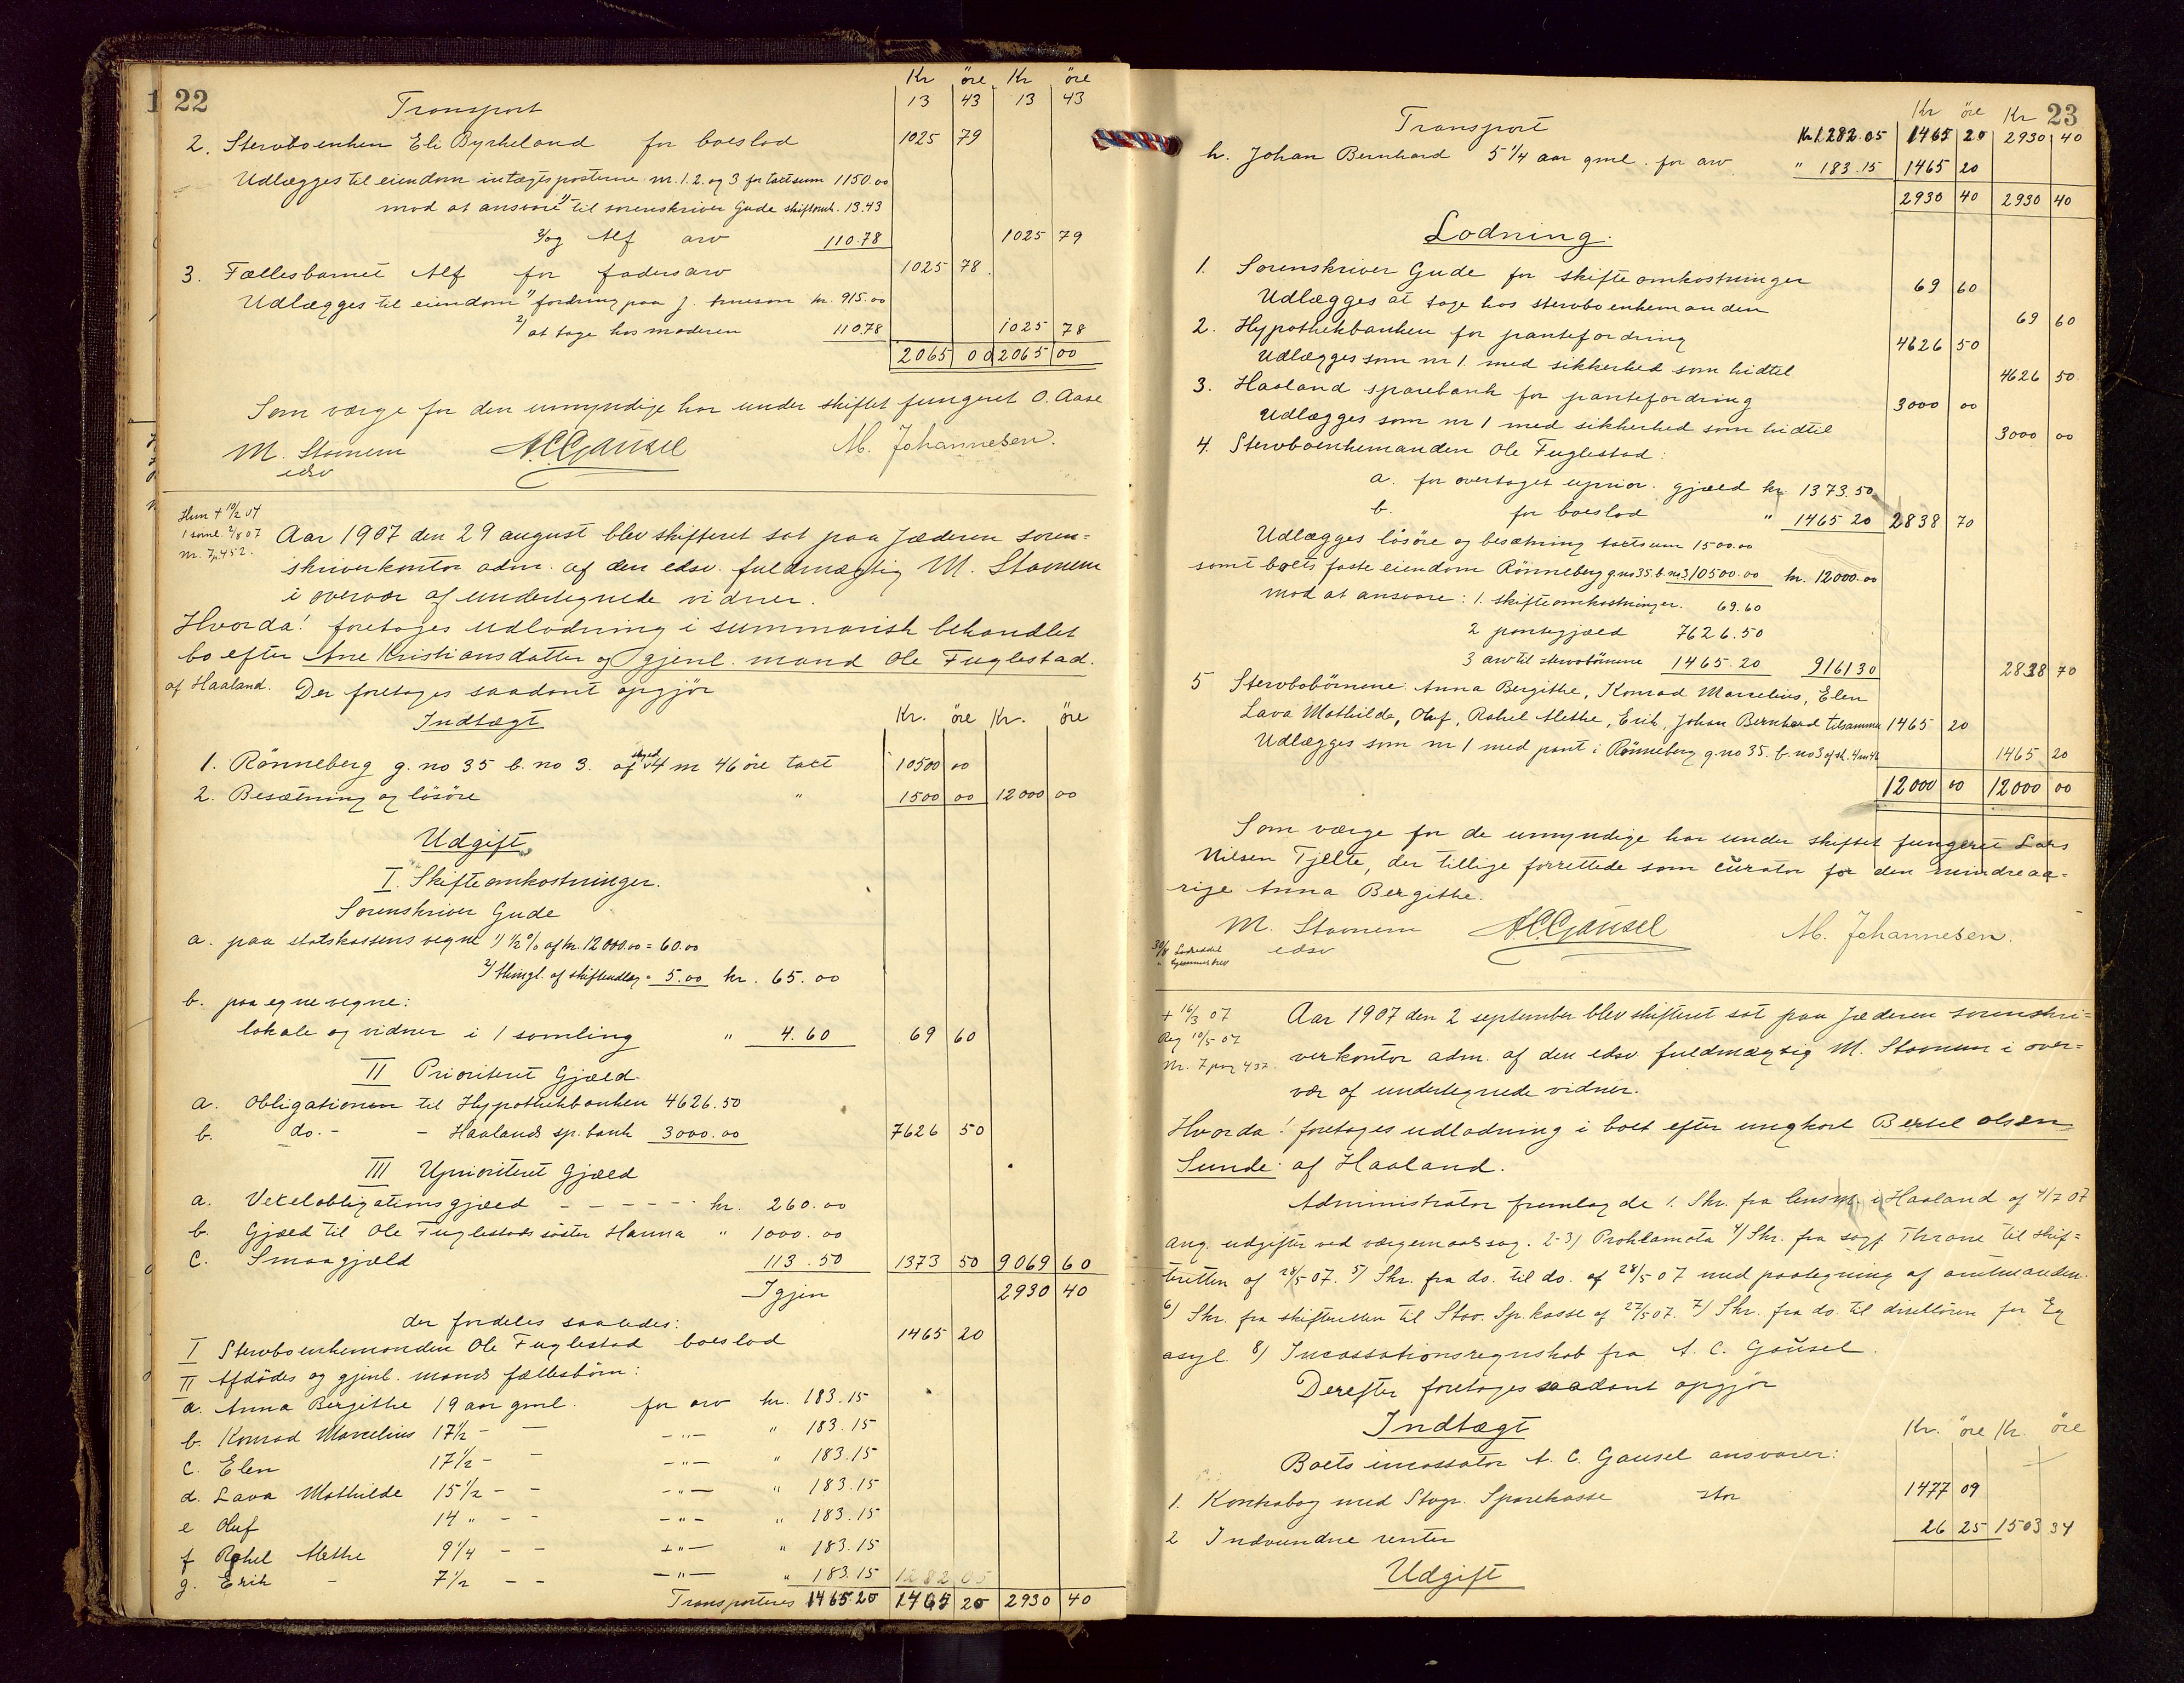 22
Kr öre Kr öre
Transport 13 43 13 43
2. Stervboenken Eli Byrkeland for boeslod 1025 79
Udlægges til eiendom intægtsposterne nr. 1. 2. og 3 for taxtsum 1150.00
mod at ansvare 1) til sorenskriver Gude skifteomk. 13.43
2) og Alf arv 110.78 1025 79
3. Fællesbarnet Alf for fadersarv 1025 78
Udlægges til eiendom 1) fordring paa J. kr. 915.00
2) at tage hos moderen 110.78 1025 78
2065 00 2065 00
Som værge for den umyndige har under skiftet fungeret O. Aase
M. Stornem A.C. Gausel M. Johannesen.
edsv
Hun + 10/2 04
1 saml. 2/8 07
Nr. 7 p 452.
Aar 1907 den 29 august blev skifteret sat paa Jæderen soren=
skriverkontor adm. af den edsv. fuldmægtig M. Stornem
i overvær af undertegnede vidner.
Hvorda! foretoges udlodning i summarisk behandlet
bo efter Ane Kristiansdatter og gjenl. mand Ole Fuglestad.
af Haaland. Der foretoges saadant opgjör
Indtægt Kr. öre Kr. öre
1. Rönneberg g. no 35 b. no 3. af skyld 4 m 46 öre taxt 10500 00
2. Besætning og lösöre " 1500 00 12000 00
Udgift
I. Skifteomkostninger.
Sorenskriver Gude
a. paa statskassens vegne 1) 1/2 % af kr. 12000.00 = 60.00
2) thingl. af skifteudlæg = 5.00 kr. 65.00
b. paa egne vegne:
lokale og vidner i 1 samling " 4.60 69 60
II Prioriteret Gjæld.
a. Obligationen til Hypothekbanken 4626.50
b. do. - - Haalands sp. bank 3000.00 7626 50
III Uprioriteret Gjæld
a. Vexelobligationsgjæld - - - - - kr. 260.00
b. Gjæld til Ole Fuglestads söster Hanna " 1000.00
c. Smaagjæld 113.50 1373 50 9069 60
Igjen 2930 40
der fordeles saaledes:
I Stervboenkemanden Ole Fuglestad boeslod 1465 20
II Afdödes og gjenl. mands fællesbörn:
a. Anna Bergithe 19 aar gml. for arv kr. 183.15
b. Konrad Marcelius 17 1/2 - - - " - " 183.15
c. Elen 17 1/2 - - - " - " 183.15
d. Lava Mathilde 15 1/2 - - - " - " 183.15
e Oluf 14 " - - - " - " 183.15
f Rakel Alethe 9 1/4 - - - " - " 183.15
g. Erik - 7 1/2 - - - " - " 183.15 1282 05
Transporteres 1465.20 1465 20 2930 40
23
Kr öre Kr
Transport Kr 1282.05 1465 20 2930 40
h. Johan Bernhard 5 1/4 aar gml. for arv " 183.15 1465 20
2930 40 2930 40
Lodning.
1. Sorenskriver Gude for skifteomkostninger 69 60
Udlægges at tage hos stervboenkemanden 69 60
2. Hypothekbanken for pantefordring 4626 50
Udlægges som nr 1. med sikkerhed som hidtil 4626 50
3. Haaland sparebank for pantefordring 3000 00
Udlægges som nr 1 med sikkerhed som hidtil 3000 00
4. Stervboenkemanden Ole Fuglestad:
a. for overtaget uprior. gjæld kr. 1373.50
b. for boeslod " 1465 20 2838 70
Udlægges lösöre og besætning taxtsum 1500.00
samt boets faste eiendom Rönneberg g.no 35. b. no 3 10500.00 kr. 12000.00
mod at ansvare: 1. skifteomkostninger. 69.60
2 pantegjæld 7626.50
3 arv til stervbörnene 1465.20 9161 30 2838 70
5 Stervbobörnene: Anna Bergithe, Konrad Marcelius, Elen
Lava Mathilde, Oluf, Rakel Alethe, Erik, Johan Bernhard tilsammen 1465 20
Udlægges som nr 1 med pant i Rönneberg g. no 35. b. no 3 af sk. 4 m 46 1465 20
12000 00 12000 00
Som værge for de umyndige har under skiftet fungeret Lars
Nilsen Tjelte, der tillige forrettede som curator for den mindreaa=
rige Anna Bergithe.
M. Stornem A.C. Gausel M. Johannesen.
30/8 edsv
+ 16/3 07
Reg 10/5 07
Nr. 7 pag 437.
Aar 1907 den 2 september blev skifteret sat paa Jæderen sorenskri=
verkontor adm. af den edsv. fuldmægtig M. Stornem i over=
vær af undertegnede vidner.
Hvorda! foretoges udlodning i boet efter ungkarl Bertel Olsen
Sunde af Haaland.
Administrator fremlagde 1. Skr. fra lensm. i Haaland af 4/7 07
ang. udgifter ved værgemaalssag. 2-3) Proklamata 4) Skr. fra sagf. Thrane til skif=
teretten af 28/5 07. 5) Skr. fra do. til do. af 28/5 07 med paategning af amtmanden.
6) Skr. fra skifteretten til Stav. Sp. kasse af 27/5 07. 7) Skr. fra do til direktören for Eg
asyl. 8) Incassationsregnskab fra A. C. Gausel.
Derefter foretoges saadant opgjör
Indtægt Kr. öre Kr. öre
Boets incassator A. C. Gausel ansvarer:
1. Kontrabog med Stavgr. Sparekasse stor 1477 09
2 Indvundne renter 26 25 1503 34
Udgift